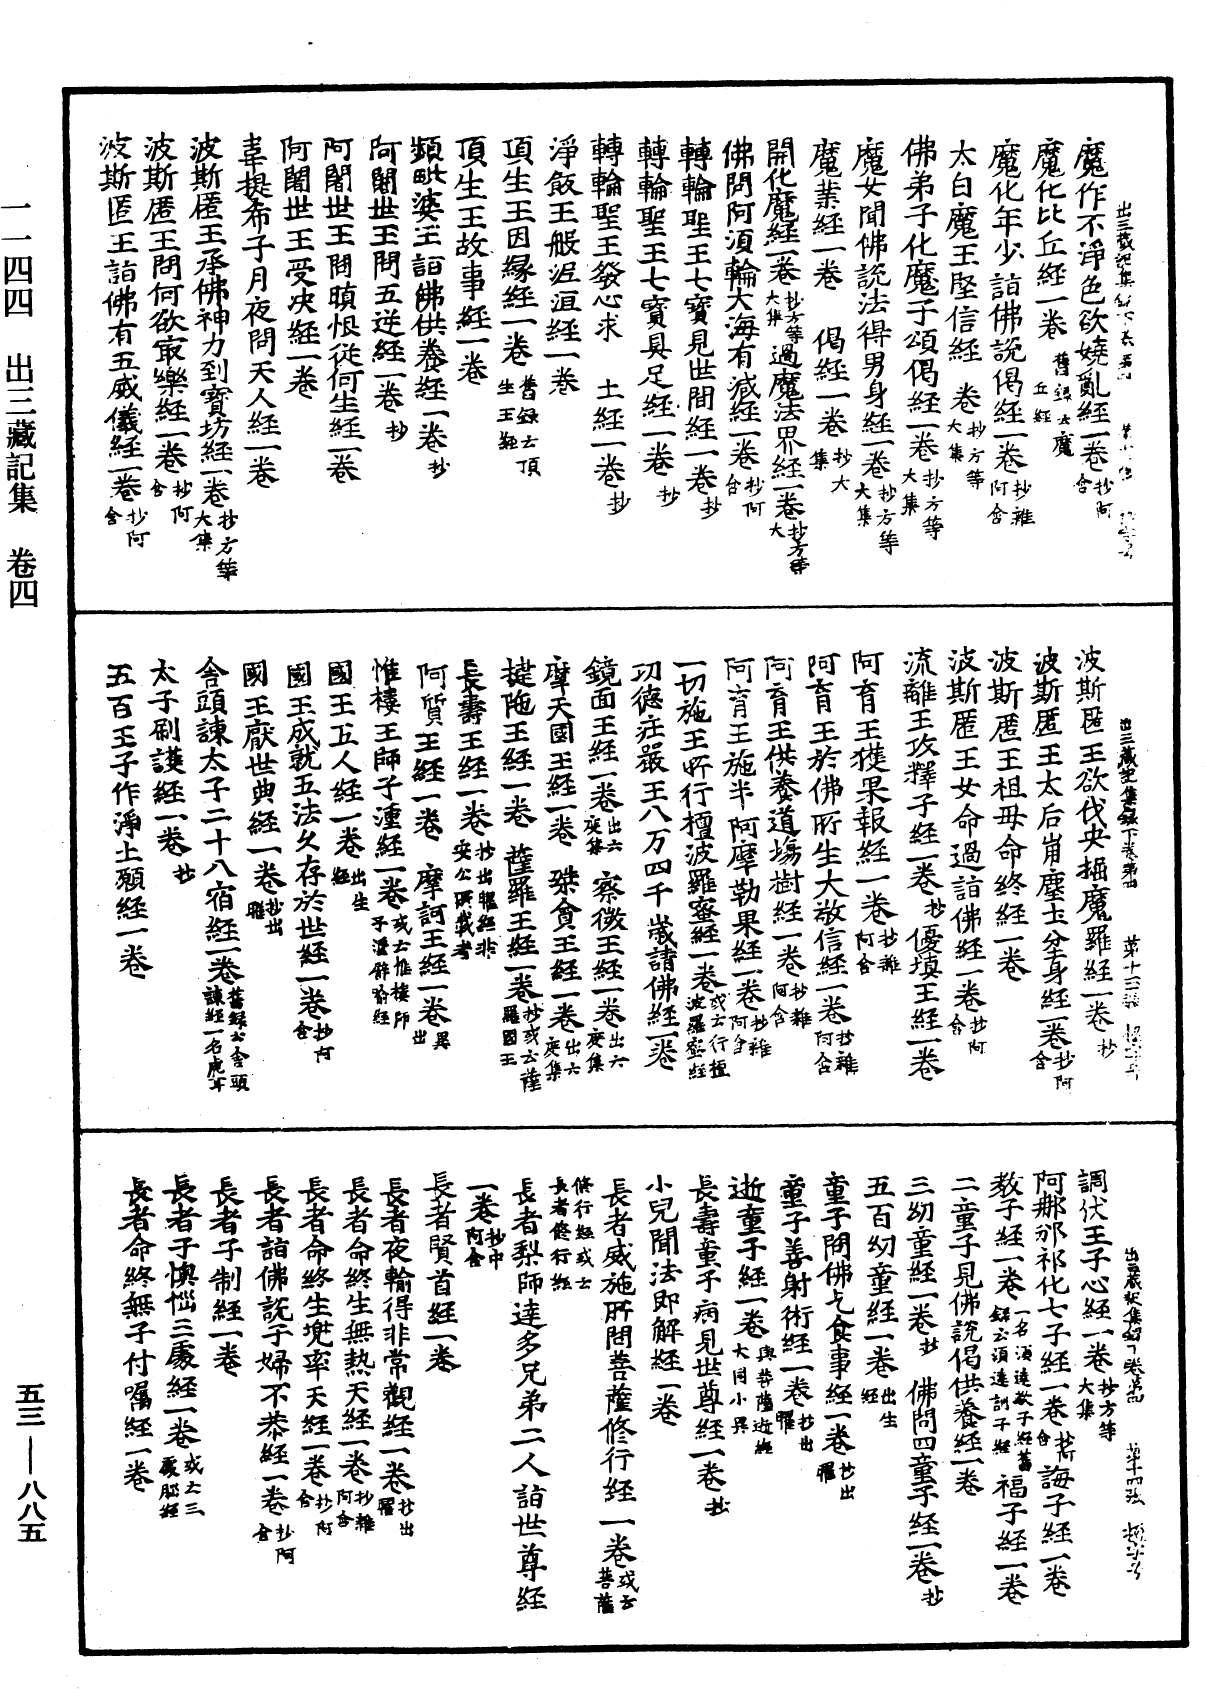 一一四四　出三藏記集　卷四
魔作不淨色欲嬈亂經一卷抄阿含
魔化比丘經一卷舊錄云魔丘經
魔化年少詣佛說偈經一卷抄雜阿含
太白魔王堅信經　卷抄方等大集
佛弟子化魔子頌偈經一卷抄方等大集
魔女聞佛說法得男身經一卷抄方等大集
魔業經一卷　偈經一卷抄大集
開化魔經一卷抄方等大集　過魔法界經一卷抄方等大
佛問阿須輪大海有減經一卷抄阿含
轉輪聖王七寶見世間經一卷抄
轉輪聖王七寶具足經一卷抄
轉輪聖王發心求　土經一卷抄
淨飯王般泥洹經一卷
頂生王因緣經一卷舊錄云頂生王經
頂生王故事經一卷
頻毗婆王詣佛供養經一卷抄
阿闍世王問五逆經一卷抄
阿闍世王問瞋恨從何生經一卷
阿闍世王受決經一卷
韋提希子月夜問天人經一卷
波斯匿王承佛神力到寶坊經一卷抄方等大集
波斯匿王問何欲最樂經一卷抄阿含
波斯匿王詣佛有五威儀經一卷抄阿含
出三藏記集錄下卷第四　第十三張
波斯匿王欲伐央掘魔羅經一卷抄
波斯匿王太后崩塵土坌身經一卷抄阿含
波斯匿王祖母命終經一卷
波斯匿王女命過詣佛經一卷抄阿含
流離王攻釋子經一卷抄優填王經一卷
阿育王獲果報經一卷抄雜阿含
阿育王於佛所生大敬信經一卷抄雜阿含
阿育王供養道場樹經一卷抄雜阿含
阿育王施半阿摩勒果經一卷抄雜阿含
一切施王所行檀波羅蜜經一卷或云行檀波羅蜜經
功德莊嚴王八万四千歲請佛經一卷
鏡面王經一卷出六度集　察微王經一卷出六度集
摩天國王經一卷　桀貪王經一卷出六度集
揵陁王經一卷　薩羅王經一卷抄或云薩羅國王
長壽王經一卷抄出曜經非安公所載者
阿質王經一卷　摩訶王經一卷異出
惟樓王師子湩經一卷或云惟樓師子湩譬喻經
國王五人經一卷出生經
國王成就五法久存於世經一卷抄阿含
國王厭世典經一卷抄出曜
舍頭諫太子二十八宿經一卷舊錄云舍頭諫經一名虎耳
太子刷護經一卷抄
五百王子作淨土願經一卷
調伏王子心經一卷抄方等大集
阿那邠祁化七子經一卷抄阿含　誨子經一卷
教子經一卷一名須達教子經舊錄云須達訓子經　福子經一卷
二童子見佛說偈供養經一卷
三幼童經一卷抄　佛問四童子經一卷抄
五百幼童經一卷出生經
童子問佛乞食事經一卷抄出曜
童子善射術經一卷抄出曜
逝童子經一卷與菩薩逝經大同小異
長壽童子病見世尊經一卷抄
小兒聞法即解經一卷
長者威施所問菩薩修行經一卷或云菩薩
修行經或云長者修行經
長者梨師達多兄弟二人詣世尊經
一卷抄中阿含
長者賢首經一卷
長者夜輸得非常觀經一卷抄出曜
長者命終生無熱天經一卷抄雜阿含
長者命終生兜率天經一卷抄阿含
長者詣佛說子婦不恭經一卷抄阿含
長者子制經一卷
長者子懊惱三處經一卷或云三處惱經
長者命終無子付囑經一卷
五三—八八五